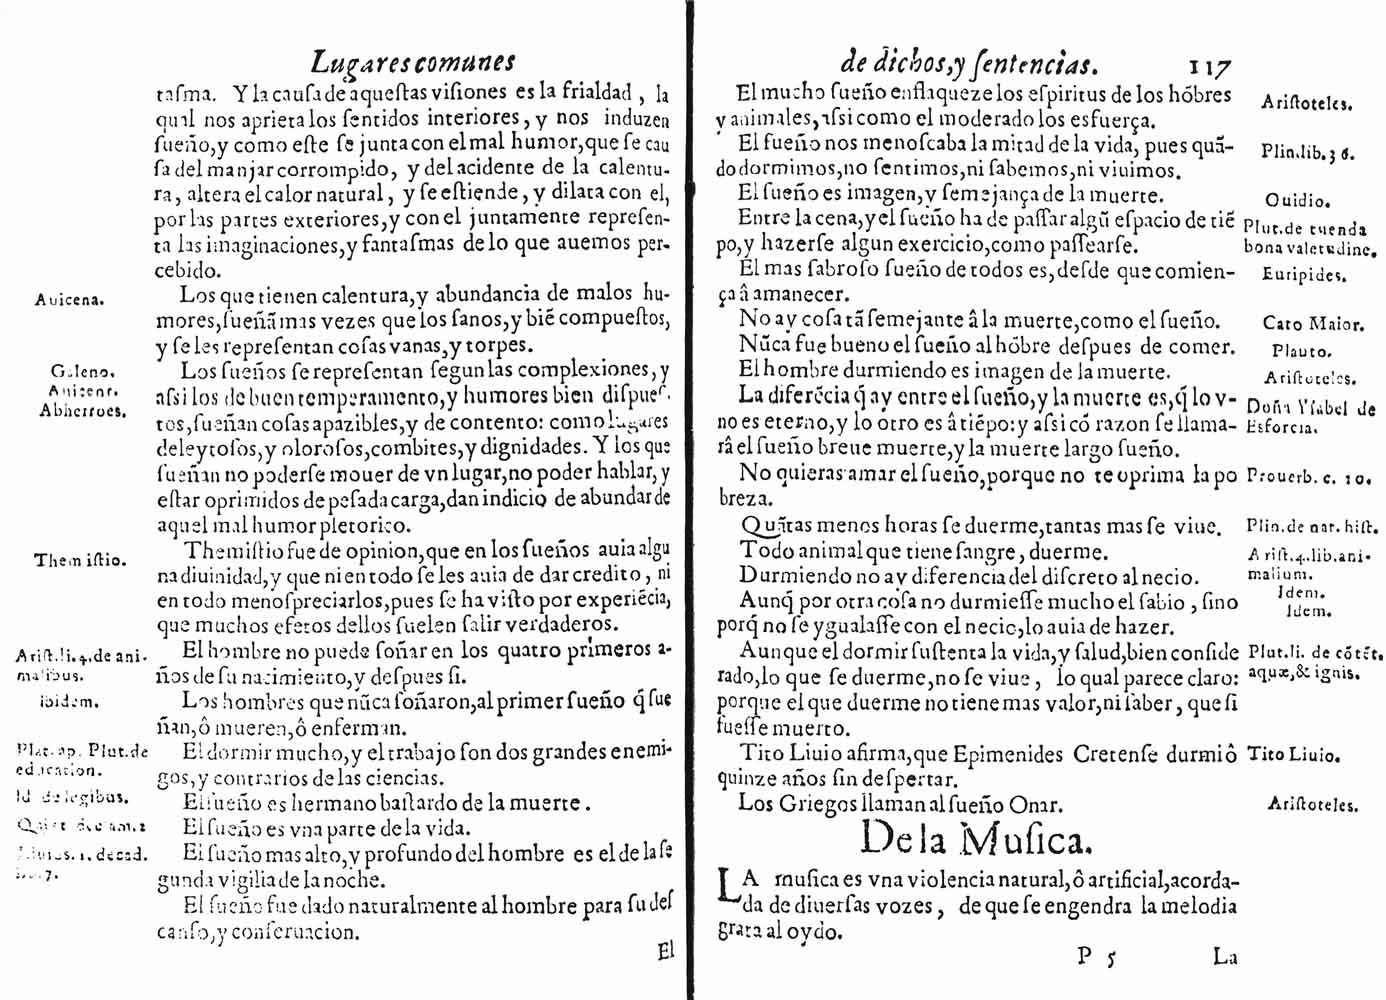 Lugares comunes
taſma. Y la cauſa de aqueſtas viſiones es la frialdad, la
qual nos aprieta los ſentidos interiores, y nos induzen
ſueño, y como eſte ſe junta con el mal humor, que ſe cau
ſa del manjar corrompido, y del acidente de la calentu-
ra, altera el calor natural, y ſe eſtiende, y dilata con el,
por las partes exteriores, y con el juntamente repreſen-
ta las imaginaciones, y fantaſmas de lo que auemos per-
cebido.
Auicena.
Los que tienen calentura, y abundancia de malos hu-
mores, ſueñã mas vezes que los ſanos, y biẽ compueſtos,
y ſe les repreſentan coſas vanas, y torpes.
Galeno.
Auicena.
Abherroes.
Los ſueños ſe repreſentan ſegun las complexiones, y
aſsi los de buen temperamento, y humores bien diſpueſ-
tos, ſueñan coſas apazibles, y de contento: como lugares
deleytoſos, y oloroſos, combites, y dignidades. Y los que
ſueñan no poderſe mouer de vn lugar, no poder hablar, y
eſtar oprimidos de peſada carga, dan indicio de abundar de
aquel mal humor pletorico.
Themiſtio.
Themiſtio fue de opinion, que en los ſueños auia algu
na diuinidad, y que ni en todo ſe les auia de dar credito, ni
en todo menoſpreciarlos, pues ſe ha viſto por experiẽcia,
que muchos efetos dellos ſuelen ſalir verdaderos.
Ariſt. li. 4. de ani-
malibus.
El hombre no puede ſoñar en los quatro primeros a-
ños de ſu nacimiento, y deſpues ſi.
ibidem.
Los hombres que nũca ſoñaron, al primer ſueño q̃ ſue
ñan, ô mueren, ô enferman.
Plat. ap. Plut. de
educacion.
El dormir mucho, y el trabajo ſon dos grandes enemi-
gos, y contrarios de las ciencias.
Id de legibus.
El ſueño es hermano baſtardo de la muerte.
El ſueño es vna parte de la vida.
1. decad.
7.
El ſueño mas alto, y profundo del hombre es el de la ſe
gunda vigilia de la noche.
El ſueño fue dado naturalmente al hombre para ſu deſ
canſo, y conſeruacion.
El
de dichos, y ſentencias. 117
El mucho ſueño enflaqueze los eſpiritus de los hõbres
y animales, aſsi como el moderado los esfuerça.
Ariſtoteles.
El ſueño nos menoſcaba la mitad de la vida, pues quã-
do dormimos, no ſentimos, ni ſabemos, ni viuimos.
Plin. lib. 36.
El ſueño es imagen, y ſemejança de la muerte.
Ouidio.
Entre la cena, y el ſueño ha de paſſar algũ eſpacio de tiẽ
po, y hazerſe algun exercicio, como paſſearſe.
Plut. de tuenda
bona valetudine.
El mas ſabroſo ſueño de todos es, deſde que comien-
ça â amanecer.
Euripides.
No ay coſa tã ſemejante â la muerte, como el ſueño.
Cato Maior.
Nũca fue bueno el ſueño al hõbre deſpues de comer.
Plauto.
El hombre durmiendo es imagen de la muerte.
Ariſtoteles.
La diferẽcia q̃ ay entre el ſueño, y la muerte es, q̃ lo v-
no es eterno, y lo otro es â tiẽpo: y aſsi cõ razon ſe llama-
râ el ſueño breue muerte, y la muerte largo ſueño.
Doña Yſabel de
Esforcia.
No quieras amar el ſueño, porque no te oprima la po
breza.
Prouerb. c. 10.
Quãtas menos horas ſe duerme, tantas mas ſe viue.
Plin. de nat. hiſt.
Todo animal que tiene ſangre, duerme.
Ariſt. 4. lib. ani-
malium.
Durmiendo no ay diferencia del diſcreto al necio.
Idem.
Aunq̃ por otra coſa no durmieſſe mucho el ſabio, ſino
porq̃ no ſe ygualaſſe con el necio, lo auia de hazer.
Idem.
Aunque el dormir ſuſtenta la vida, y ſalud, bien conſide
rado, lo que ſe duerme, no ſe viue, lo qual parece claro:
porque el que duerme no tiene mas valor, ni ſaber, que ſi
fueſſe muerto.
Plut. li. de cõtẽt.
aquæ, & ignis.
Tito Liuio afirma, que Epimenides Cretenſe durmiô
quinze años ſin deſpertar.
Tito Liuio.
Los Griegos llaman al ſueño Onar.
Ariſtoteles.
De la Muſica.
LA muſica es vna violencia natural, ô artificial, acorda-
da de diuerſas vozes, de que ſe engendra la melodia
grata al oydo.
P 5 La